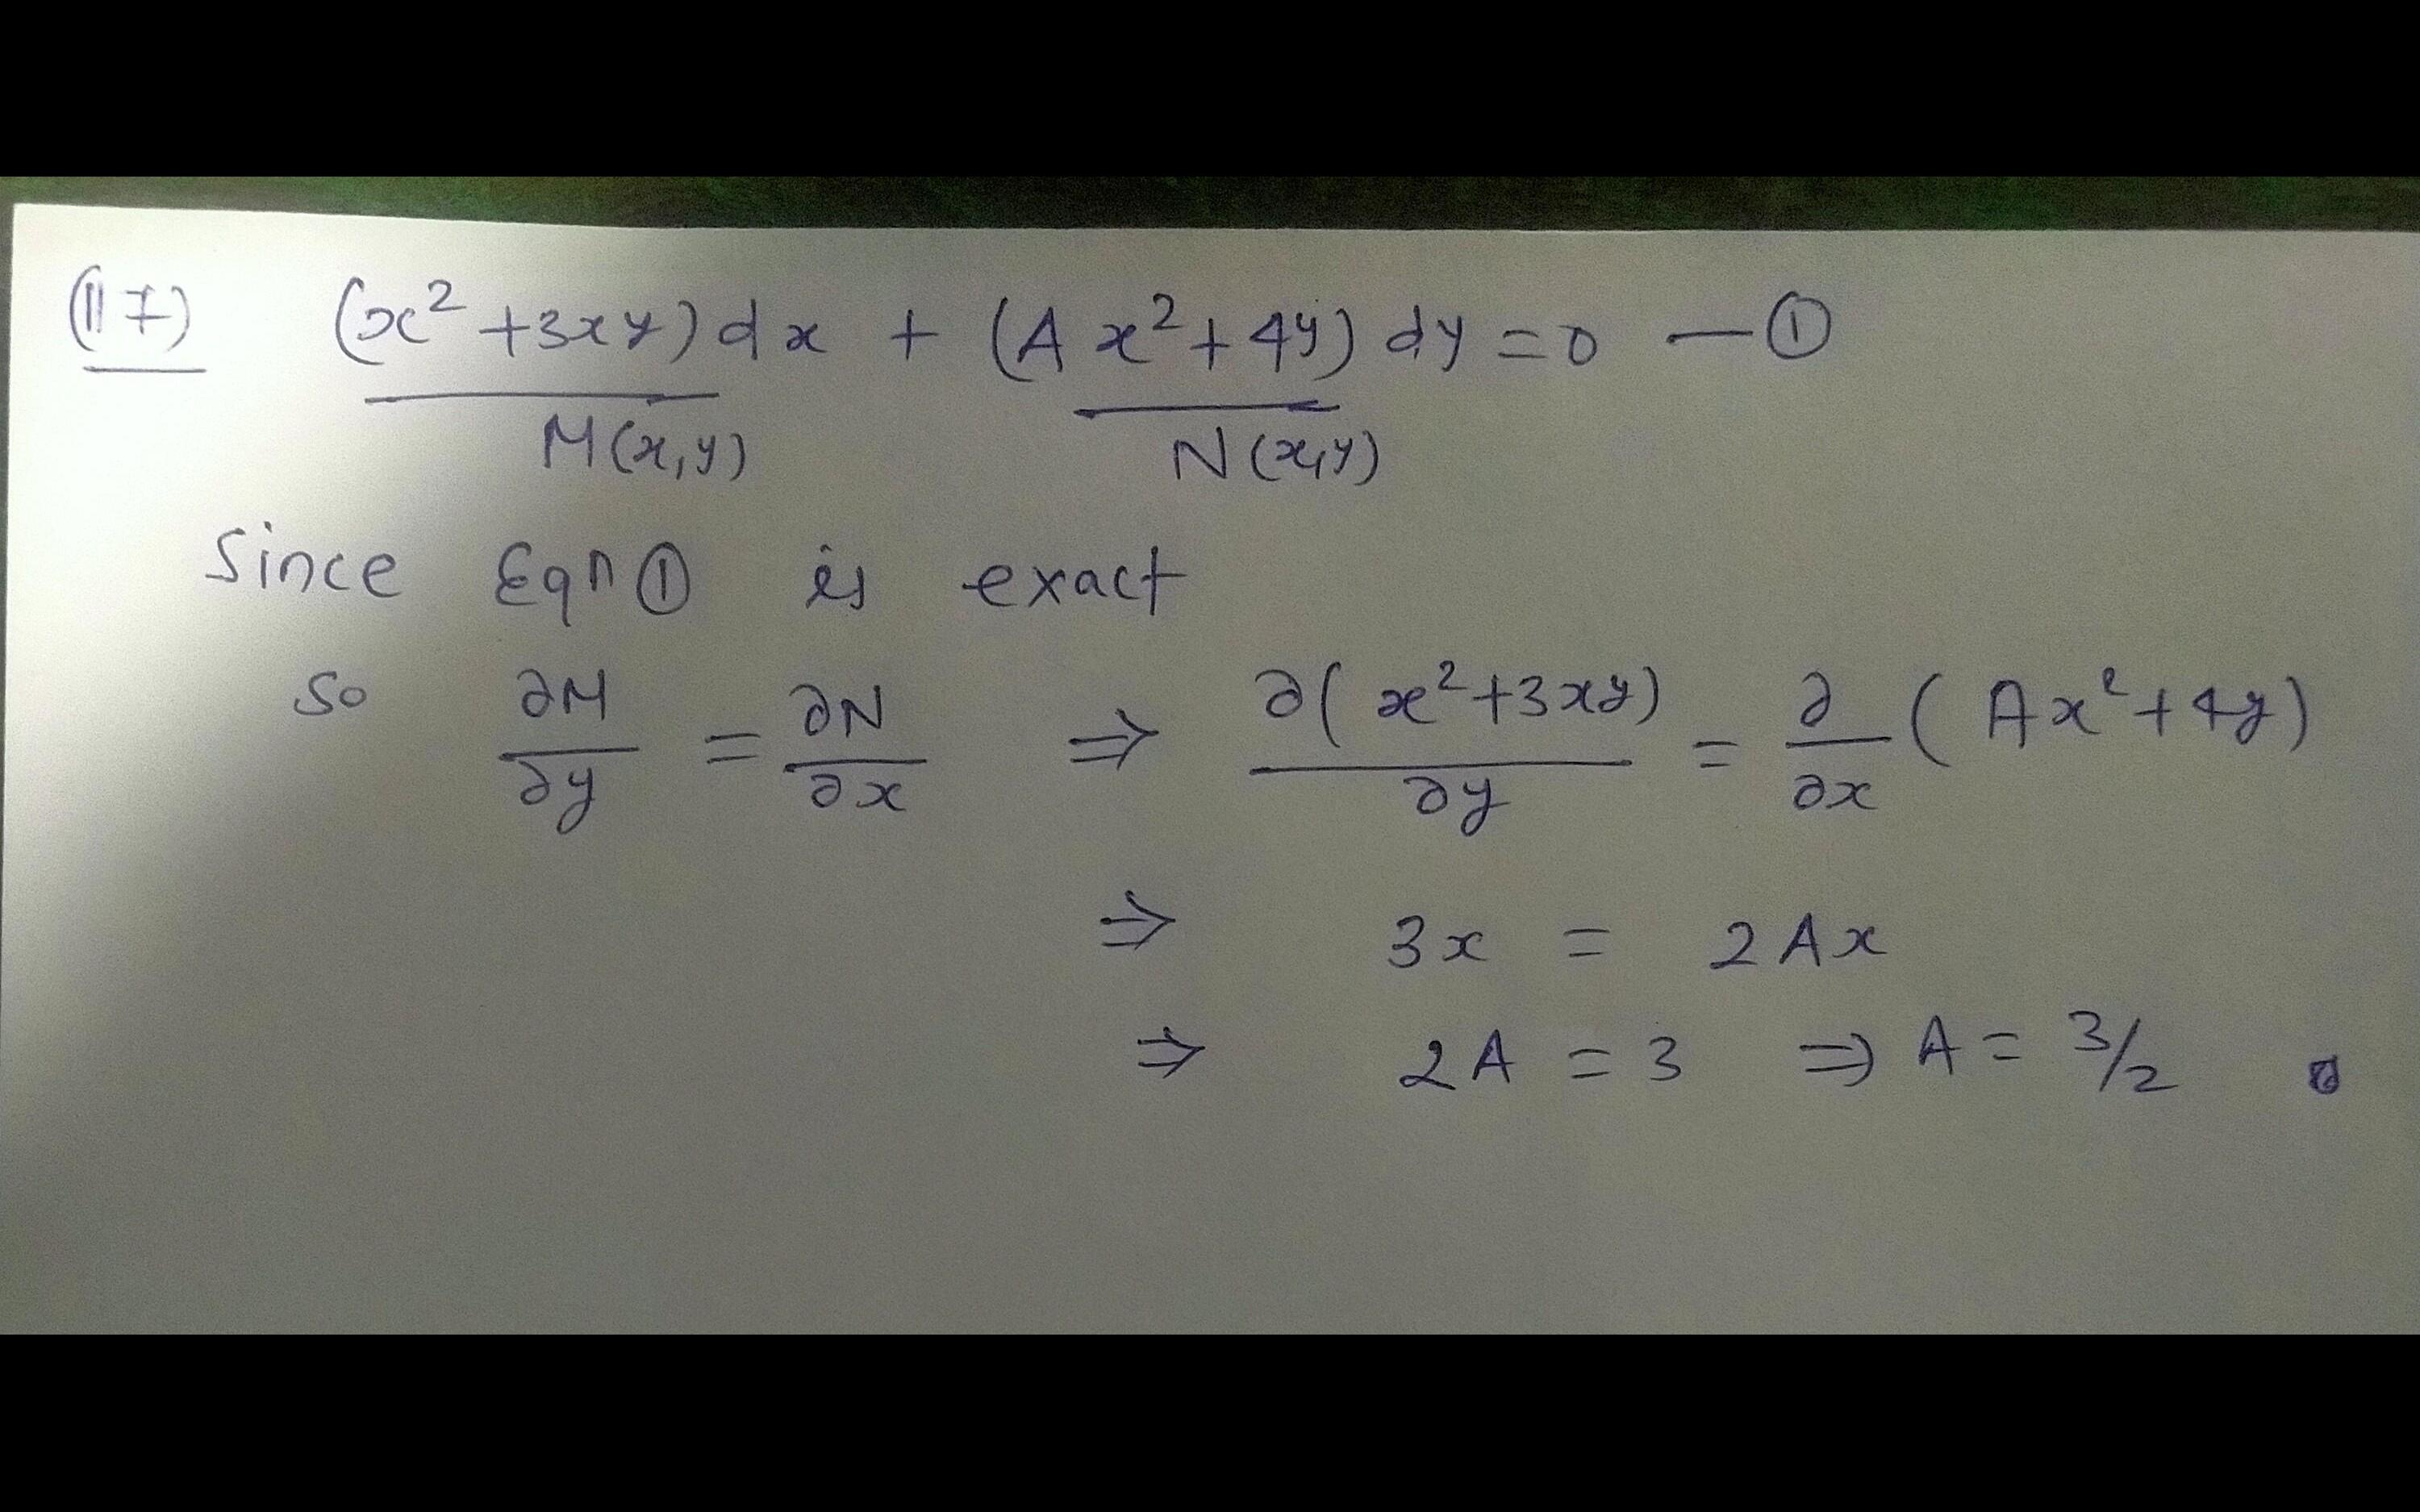 (117) (x² + 3xy) dx + (Ax² + 4y) dy = 0 — ①
M(x,y) N(x,y)
Since Eqn ① is exact
So ∂M/∂y = ∂N/∂x ⇒ ∂(x² + 3xy)/∂y = ∂/∂x (Ax² + 4y)
⇒ 3x = 2Ax
⇒ 2A = 3 ⇒ A = 3/2